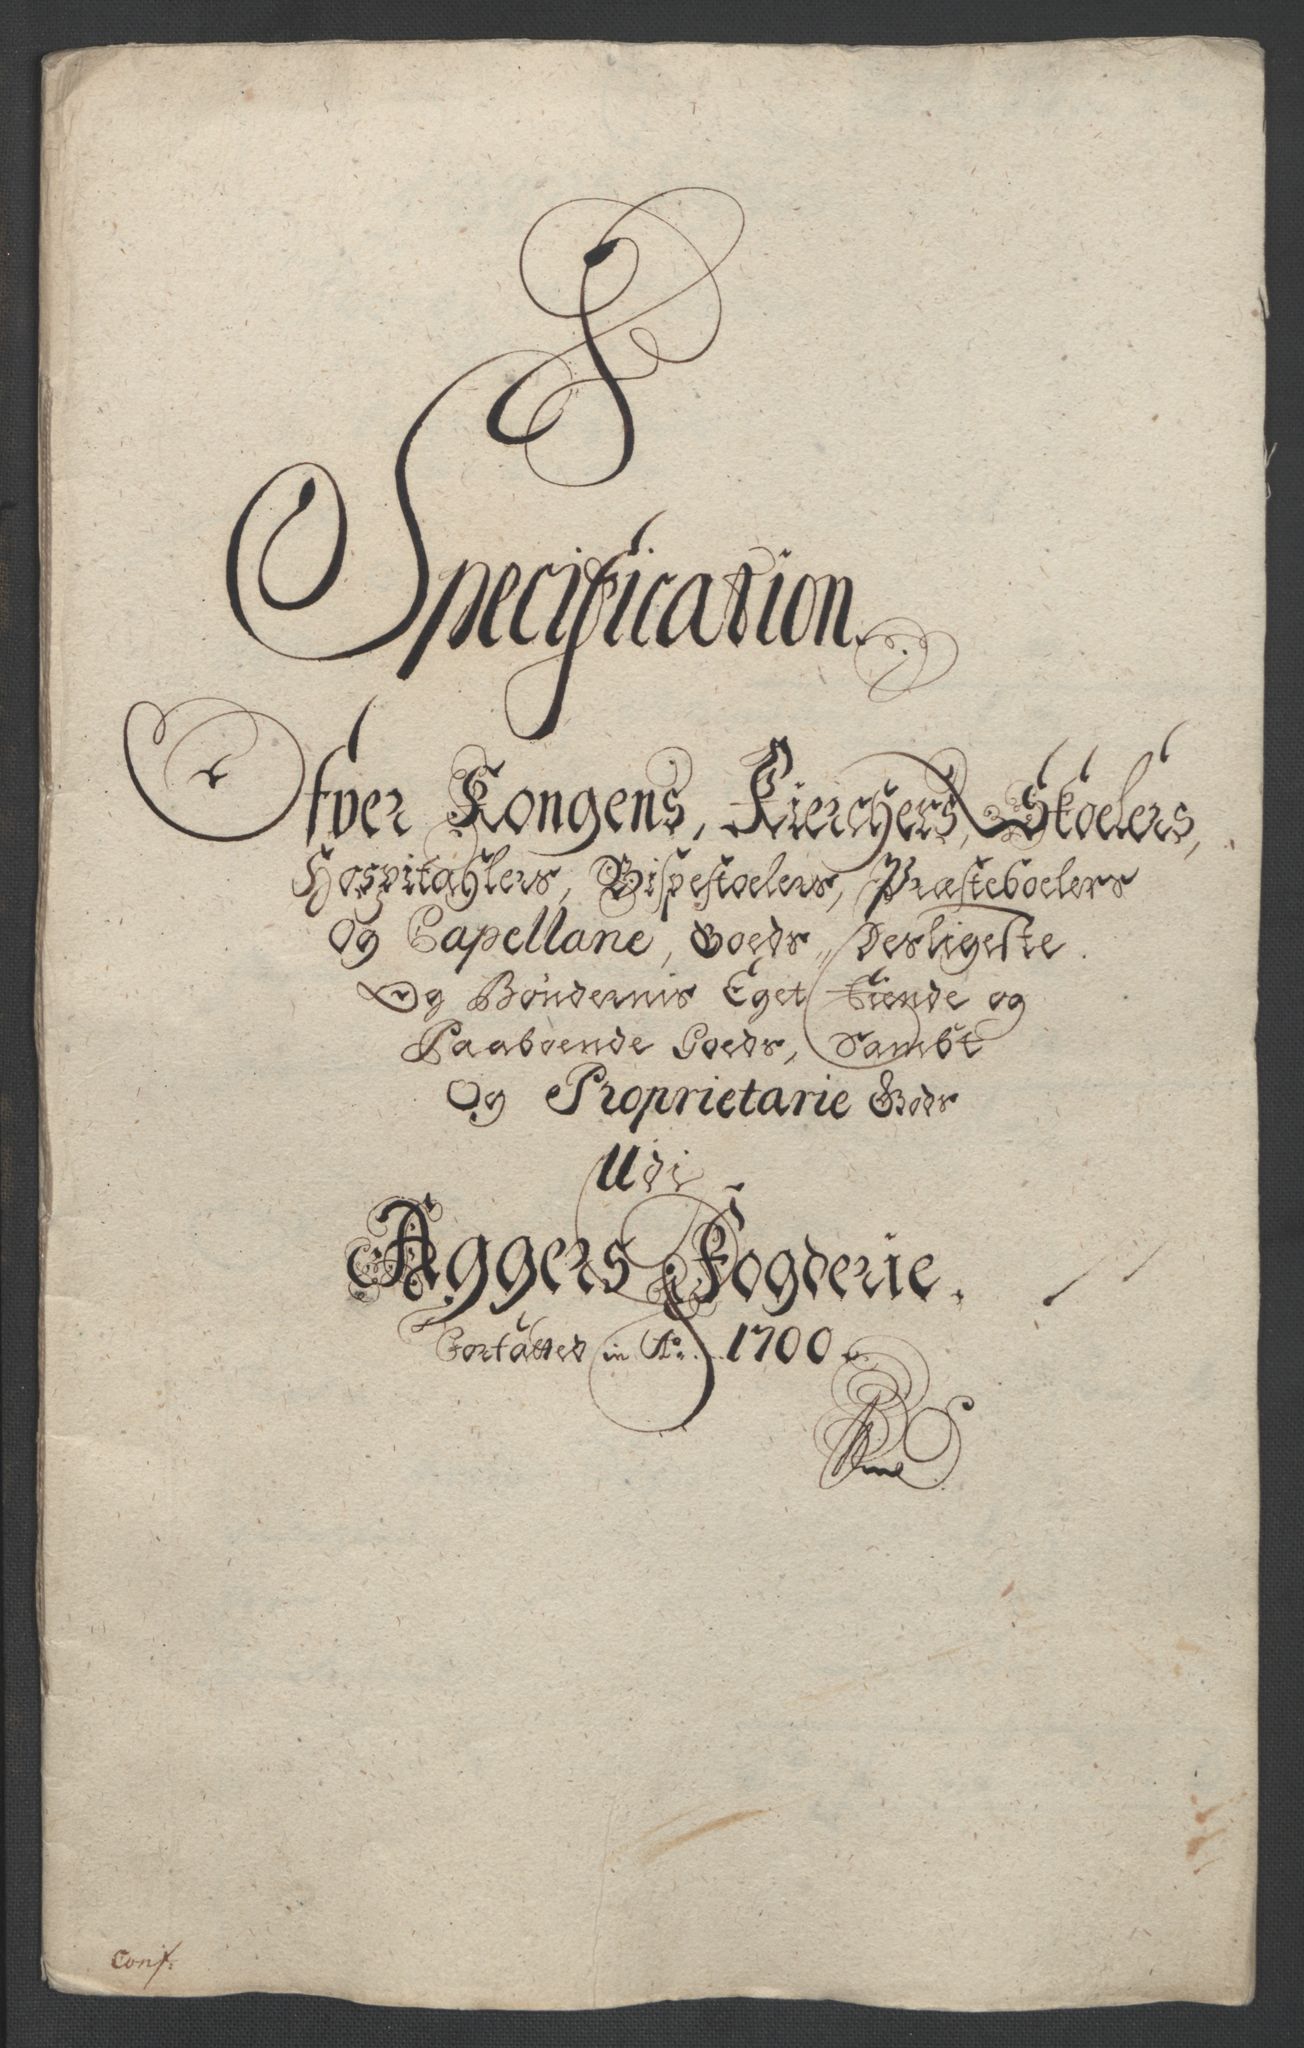 Specification.
Ofver Kongens, Kierchers, Skoelers,
Hospitahlers, Bispestoelers, Præsteboelers
Og Capellane, Goeds, Desligeste
Og Bøndernis Eget Eiende og
Paaboende Goeds, Sambt
Og Proprietarie Gods
Udi
Aggers Fogderie.
Forfatted in Ao. 1700
Conf.